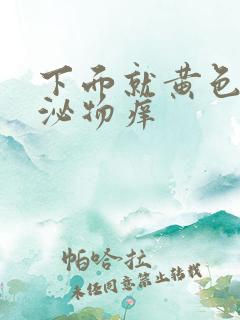 下而就黄色
泌物痒
帕哈拉
未经同意禁止转载